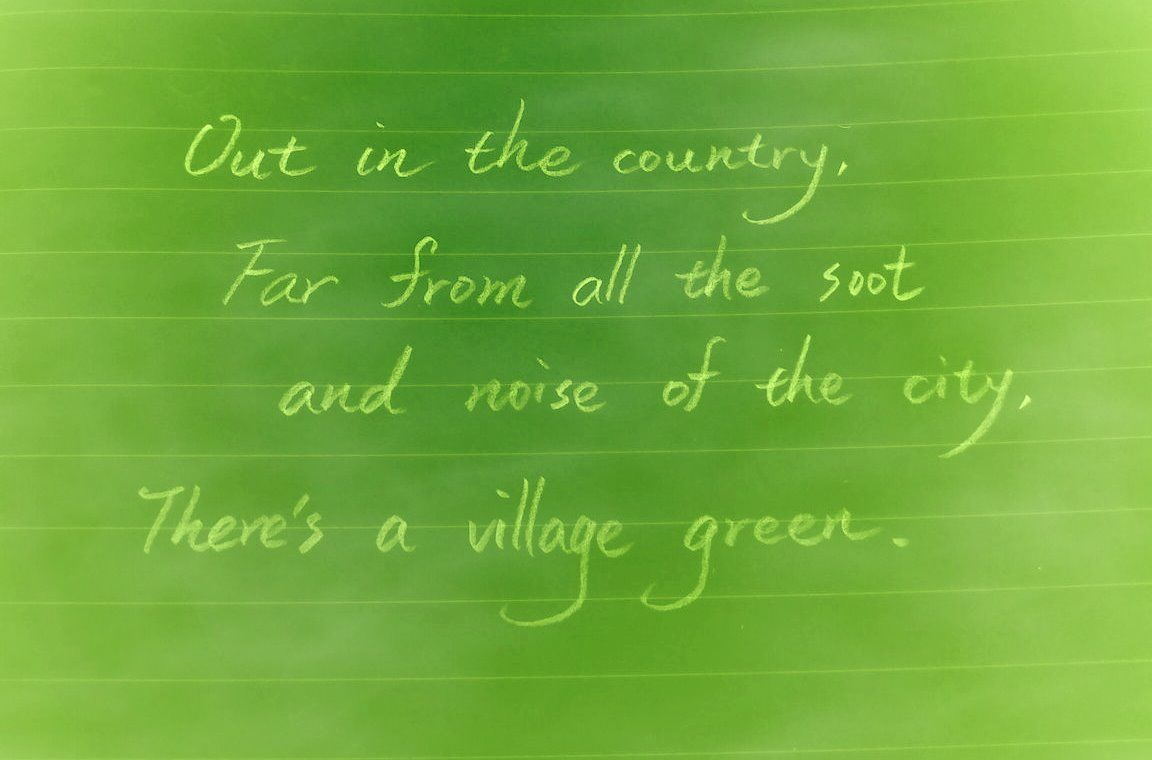 Out in the country,
Far from all the soot
and noise of the city,
There's a village green.